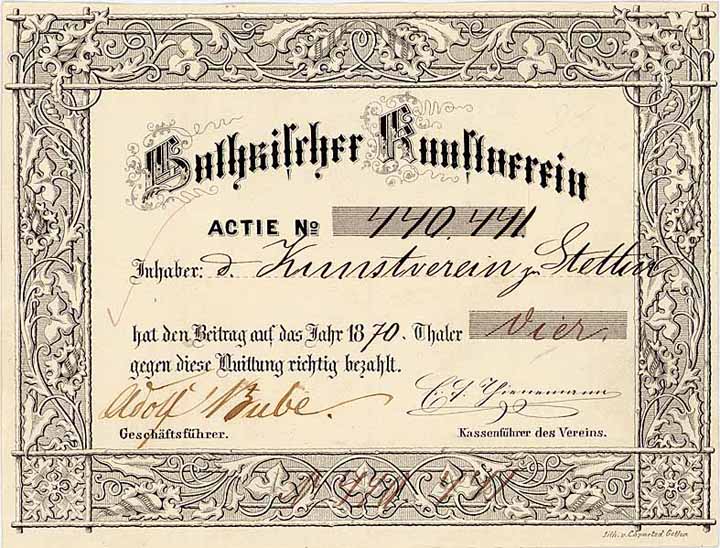 Gothaischer Kunstverein
ACTIE No 440.441.
Inhaber: d. Kunstverein zu Stettin
hat den Beitrag auf das Jahr 1870. Thaler Vier.
gegen diese Quittung richtig bezahlt.
Adolf Bube.
C. F. Thienemann
Geschäftsführer.
Kassenführer des Vereins.
Lith. v.